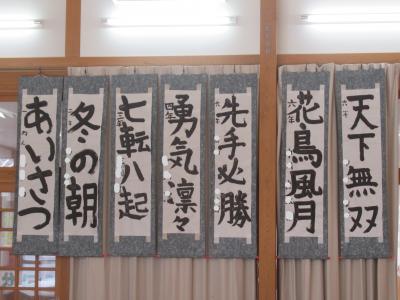 天下無双
六年
花鳥風月
六年
先手必勝
六
勇気凛々
四年
七転八起
三年
冬の朝
あいさつ